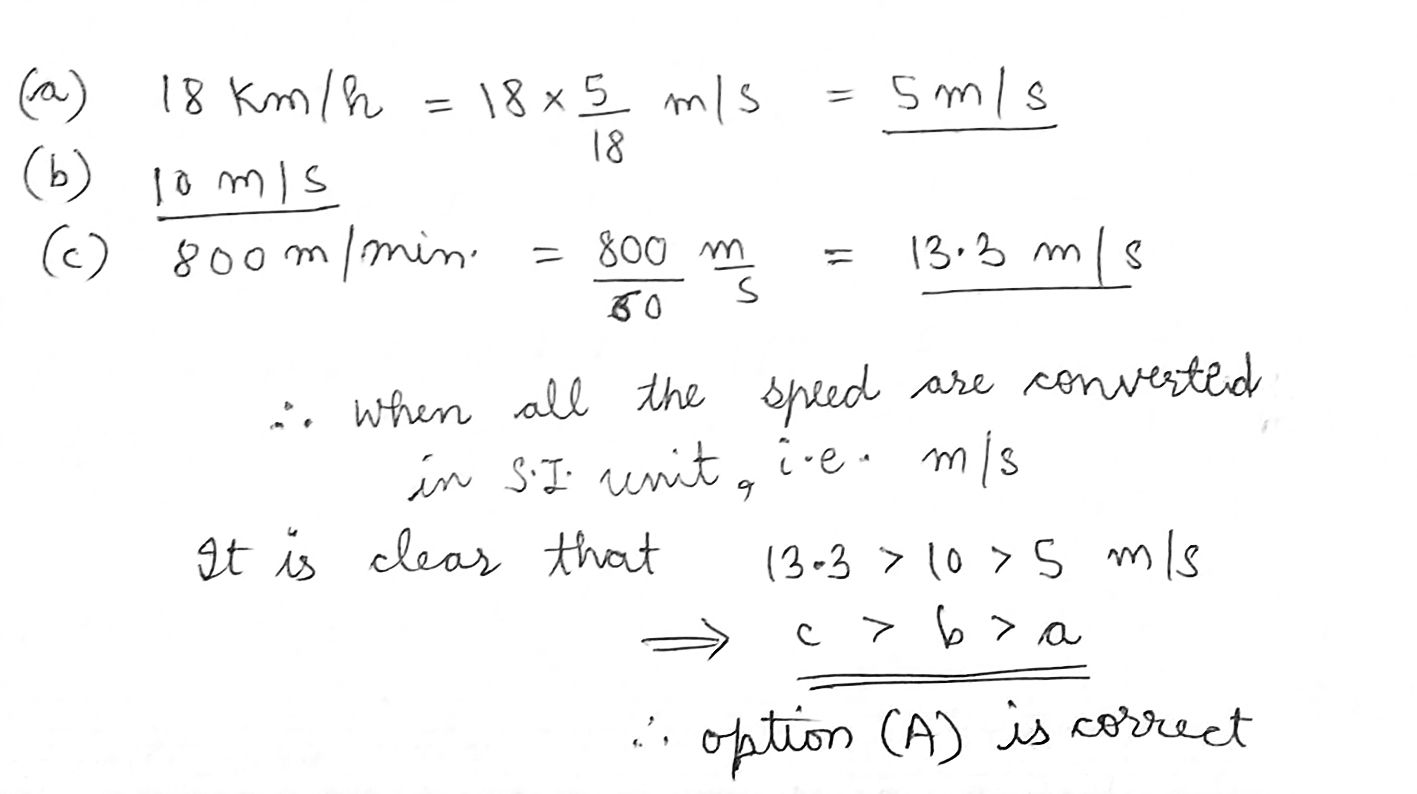 (a) 18 Km/h = 18 × 5/18 m/s = 5 m/s
(b) 10 m/s
(c) 800 m/min. = 800/60 m/s = 13.3 m/s
∴ When all the speed are converted
in S.I. unit, i.e. m/s
It is clear that 13.3 > 10 > 5 m/s
⇒ c > b > a
∴ option (A) is correct